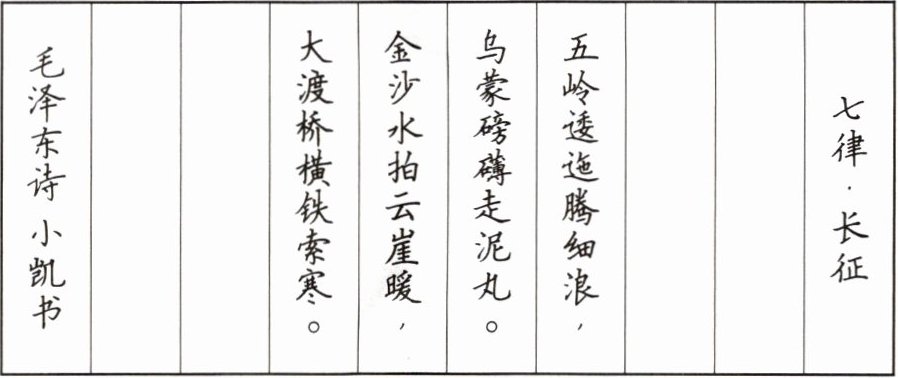 七律·长征
五岭逶迤腾细浪，
乌蒙磅礴走泥丸。
金沙水拍云崖暖，
大渡桥横铁索寒。
毛泽东诗 小凯书